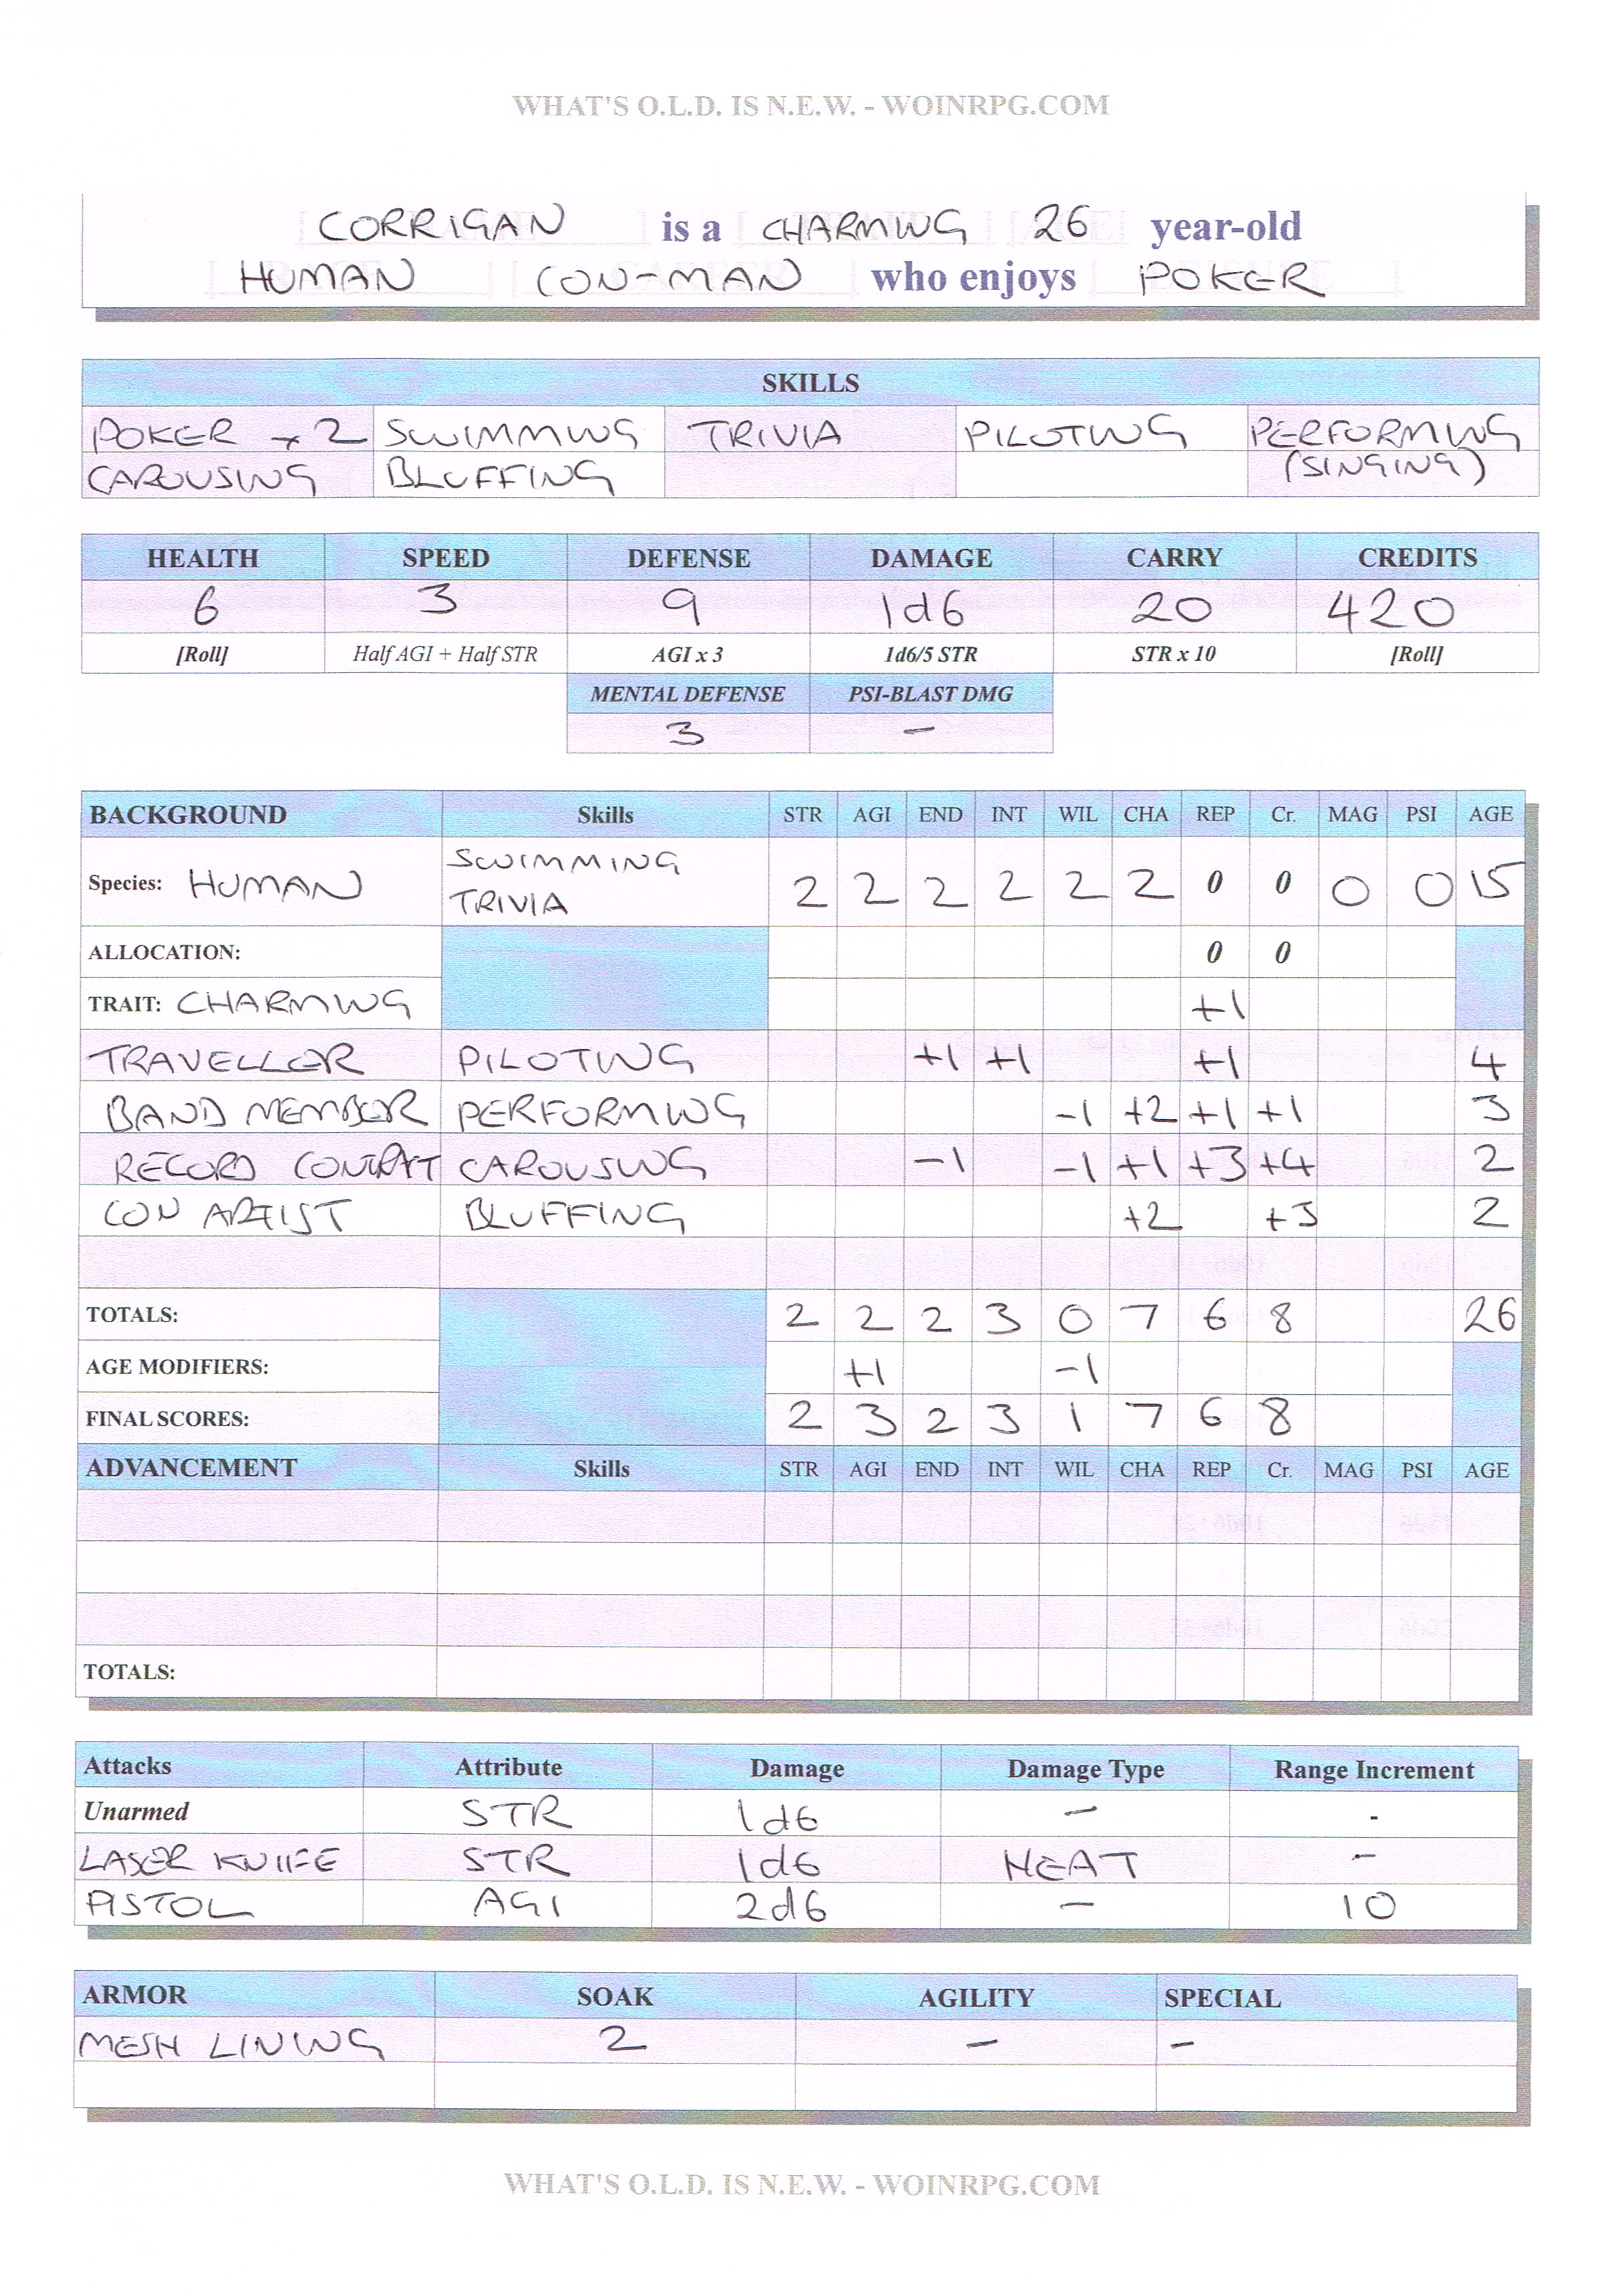 WHAT'S O.L.D. IS N.E.W. - WOINRPG.COM
CORRIGAN is a CHARMING 26 year-old
HUMAN CON-MAN who enjoys POKER
SKILLS
POKER x2 SWIMMING TRIVIA PILOTING PERFORMING
CAROUSING BLUFFING (SINGING)
HEALTH SPEED DEFENSE DAMAGE CARRY CREDITS
6 3 9 1d6 20 420
[Roll] Half AGI + Half STR AGI x 3 1d6/5 STR STR x 10 [Roll]
MENTAL DEFENSE PSI-BLAST DMG
3 -
BACKGROUND Skills STR AGI END INT WIL CHA REP Cr. MAG PSI AGE
Species: HUMAN SWIMMING TRIVIA 2 2 2 2 2 2 0 0 0 0 15
ALLOCATION: 0 0
TRAIT: CHARMING +1
TRAVELLER PILOTING +1 +1 +1 4
BAND MEMBER PERFORMING -1 +2 +1 +1 3
RECORD CONTRAT CAROUSING -1 -1 +1 +3 +4 2
CON ARTIST BLUFFING +2 +3 2
TOTALS: 2 2 2 3 0 7 6 8 26
AGE MODIFIERS: +1 -1
FINAL SCORES: 2 3 2 3 1 7 6 8
ADVANCEMENT Skills STR AGI END INT WIL CHA REP Cr. MAG PSI AGE
TOTALS:
Attacks Attribute Damage Damage Type Range Increment
Unarmed STR 1d6 - -
LASER KNIFE STR 1d6 HEAT -
PISTOL AGI 2d6 - 10
ARMOR SOAK AGILITY SPECIAL
MESH LINING 2 - -
WHAT'S O.L.D. IS N.E.W. - WOINRPG.COM